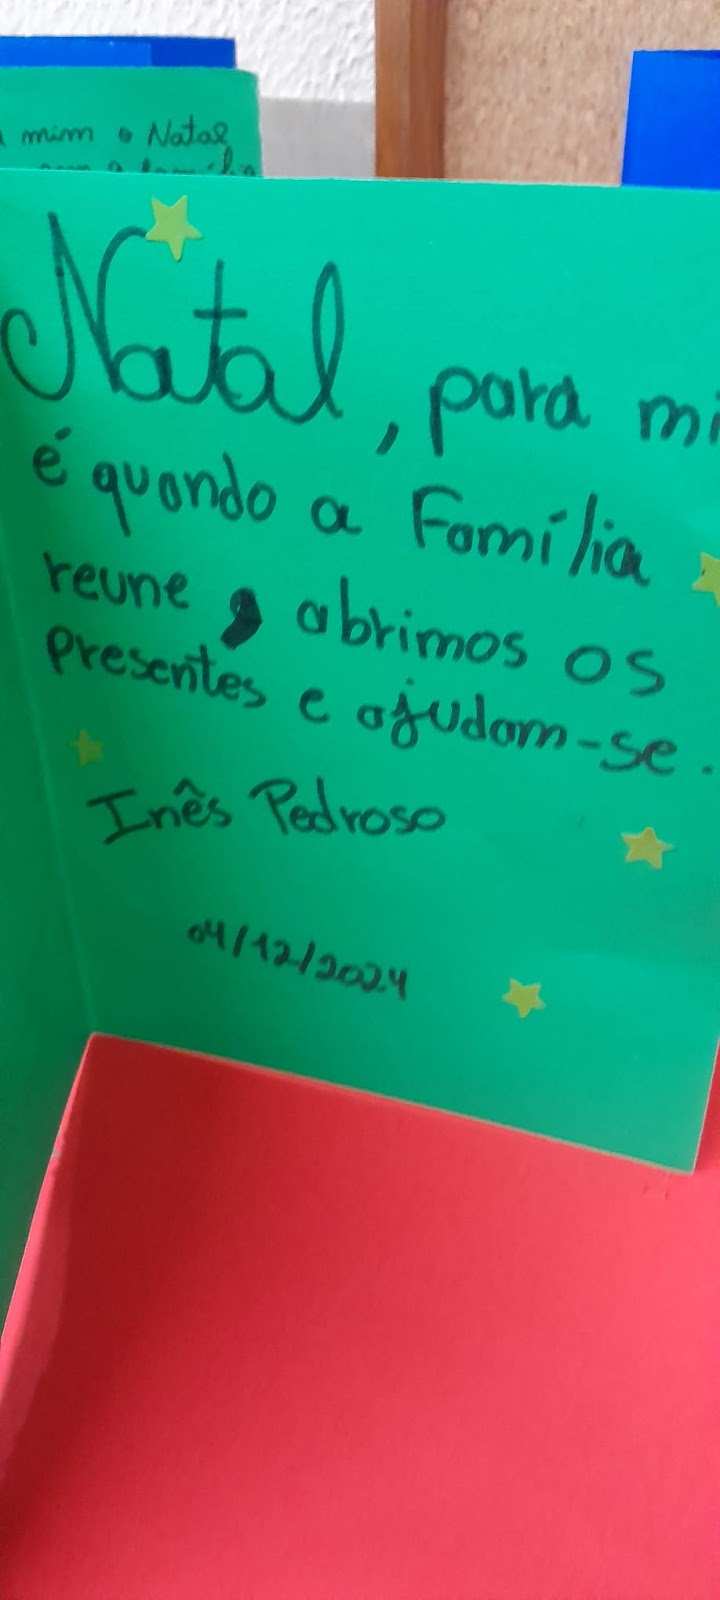 mim o Natal
com a família
Natal, para mi
é quando a Família
reune, abrimos os
presentes e ajudam-se.
Inês Pedroso
04/12/2024